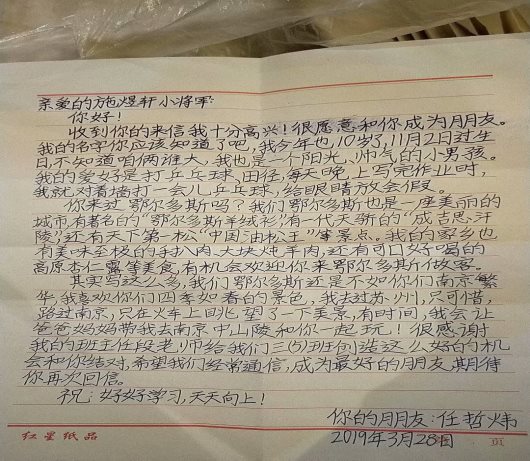 亲爱的施煜轩小将军:
你好!
收到你的来信我十分高兴!很愿意和你成为朋友。
我的名字你应该知道了吧,我今年也10岁了,11月2日过生
日,不知道咱俩谁大,我也是一个阳光、帅气的小男孩。
我的爱好是打乒乓球、田径,每天晚上写完作业时,
我就对着墙打一会儿乒乓球,给眼睛放会假。
你来过鄂尔多斯吗?我们鄂尔多斯也是一座美丽的
城市,有著名的“鄂尔多斯羊绒衫”有一代天骄的“成吉思汗
陵”还有天下第一松“中国油松王”等景点。我的家乡也
有美味至极的手扒肉、大块炖羊肉,还有可口好喝的
高原杏仁露等美食,有机会欢迎你来鄂尔多斯做客。
其实写这么多,我们鄂尔多斯还是不如你们南京繁
华,我喜欢你们四季如春的景色,我去过苏州,只可惜,
路过南京,只在火车上眺望了一下美景,有时间,我会让
爸爸妈妈带我去南京中山陵和你一起玩!很感谢
我的班主任段老师给我们三(5)班创造这么好的机
会和你结对,希望我们经常通信,成为最好的朋友,期待
你再次回信。
祝:好好学习,天天向上!
你的朋友:任哲炜
2019年3月28日
红星纸品